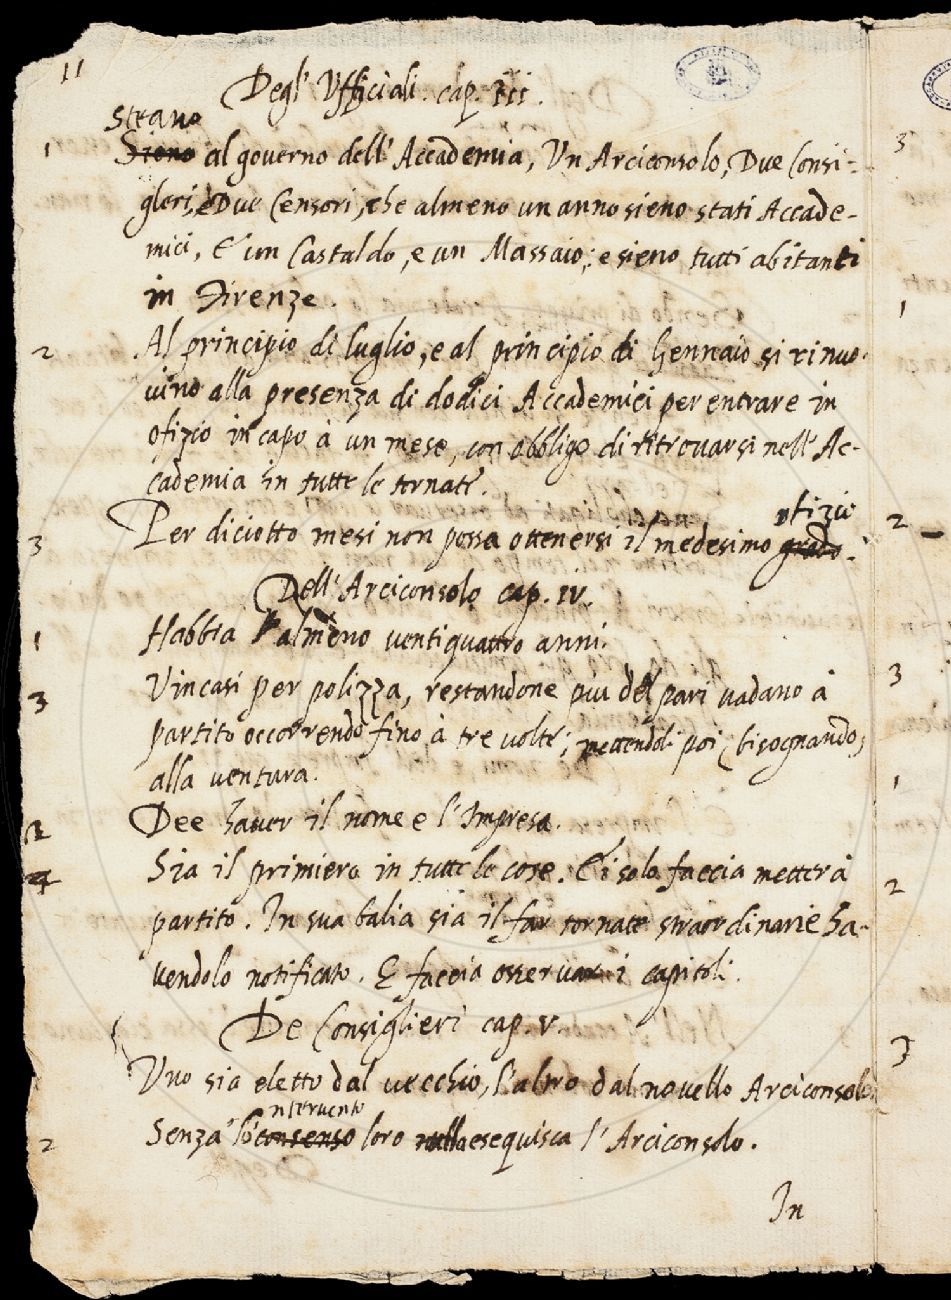 11
Degl' Ufficiali. cap. III.
Steano
1 Sieno al governo dell' Accademia, Un Arciconsolo, Due Consi-
glieri, e Due Censori, che almeno un anno sieno stati Accade-
mici, E un Castaldo, e un Massaio; e sieno tutti abitanti
in Firenze.
2 Al principio di luglio, e al principio di Gennaio si rinuo-
vino alla presenza di dodici Accademici per entrare in
ofizio in capo à un mese, con obbligo di ritrovarsi nell' Ac-
cademia in tutte le tornate.
ofizio
3 Per diciotto mesi non possa ottenersi il medesimo grado.
Dell' Arciconsolo cap. IV.
1 Habbia almeno ventiquattro anni.
3 Vincasi per polizza, restandone piu del pari vadano à
partito occorrendo fino à tre volte; mettendoli poi (bisognando)
alla ventura.
2 Dee haver il nome e l'Impresa.
4 Sia il primiero in tutte le cose. Ei solo faccia metter à
partito. In sua balia sia il far tornate straordinarie ha-
vendolo notificato. E faccia osservare i capitoli.
De Consiglieri cap. V.
Uno sia eletto dal vecchio, l'altro dal novello Arciconsolo.
intervento
2 Senza lo consenso loro nulla esequisca l'Arciconsolo.
In
3
1
2
3
1
2
3